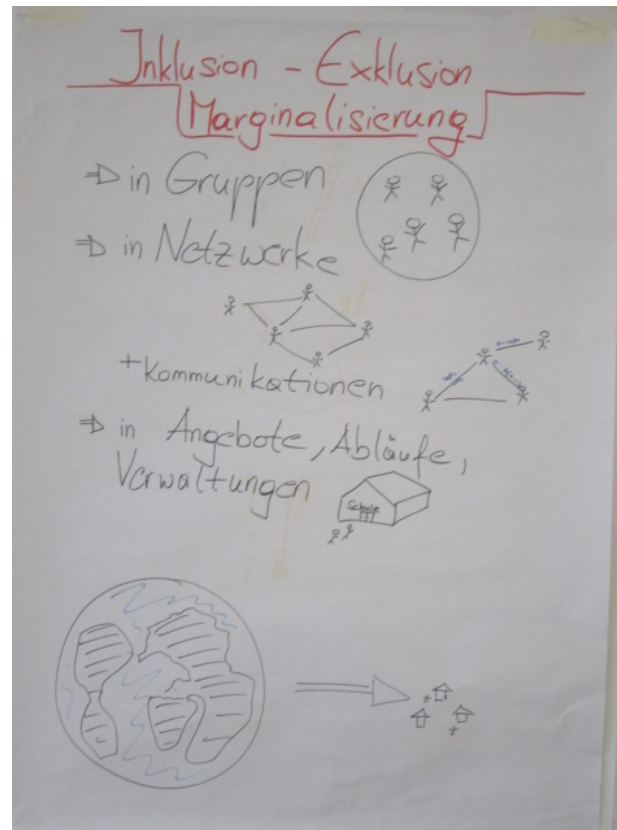 Inklusion - Exklusion
Marginalisierung
⇒ in Gruppen
⇒ in Netzwerke
+ Kommunikationen
⇒ in Angebote, Abläufe,
Verwaltungen
Schule